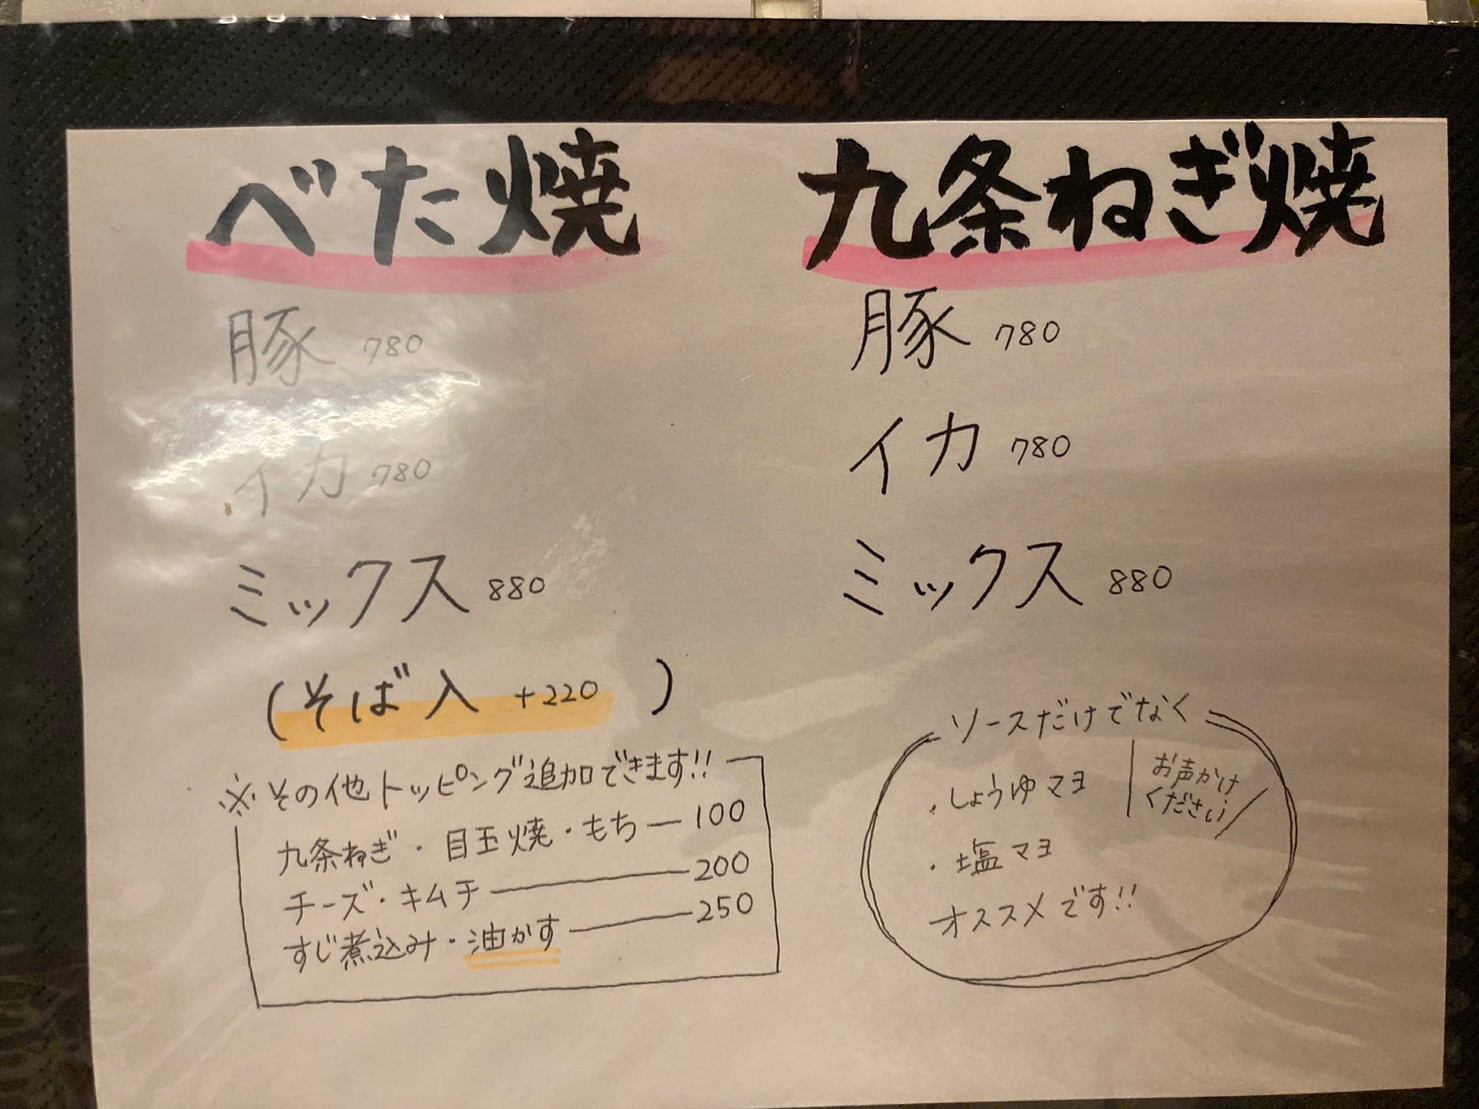 べた焼
豚 780
イカ 780
ミックス 880
(そば入 +220)
※その他トッピング追加できます!!
九条ねぎ・目玉焼・もち ― 100
チーズ・キムチ ― 200
すじ煮込み・油かす ― 250
九条ねぎ焼
豚 780
イカ 780
ミックス 880
ソースだけでなく
・しょうゆマヨ
・塩マヨ
オススメです!!
お声かけ
ください/